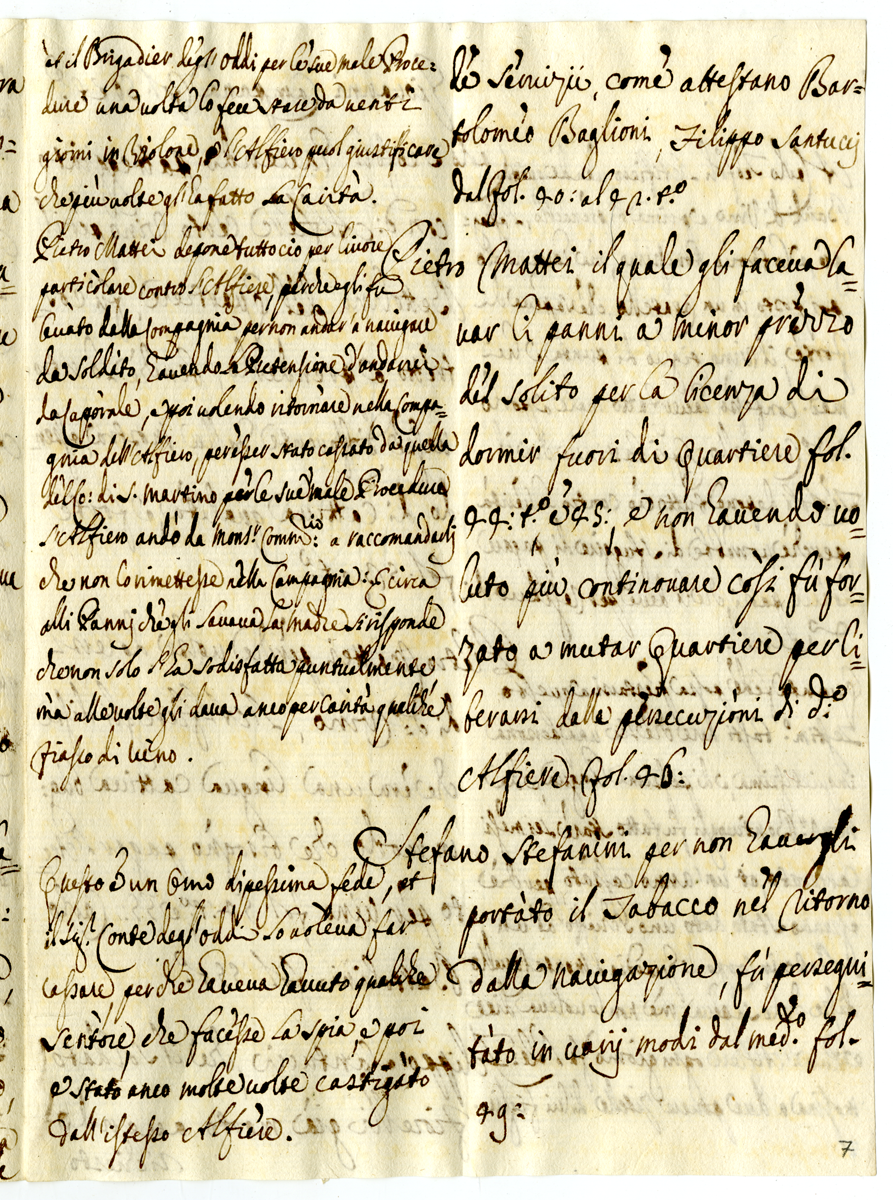 et il Brigadier degl'Oddi per le sue male Proce=
dure una volta lo fece stare da venti
giorni in Prigione, e l'Alfiero puol giustificare
che più volte gli ha fatto la Carità.
Pietro Mattei depone tutto ciò per livore
particolare contro l'Alfiere, perche egli fù
levato dalla Compagnia per non andar a navigare
da soldato, havendo Pretensione d'andarvi
da Caporale, e poi volendo ritornare nella Compa=
gnia dell'Alfiero, per esser stato cassato da quella
del Co: di S. Martino per le sue male Procedure
l'Alfiero andò da Mons.r Comm.rio à raccomandarsi
che non lo rimettesse nella Compagnia: E circa
alli Panni che gli lavava la madre si risponde
che non solo l'ha sodisfatta puntualmente,
mà alle volte gli dava anco per carità qualche
fiasco di vino.
Questo è un Omo di pessima fede, et
il Sig.r Conte degl'Oddi lo voleva far
cassare, perche haveva havuto qualche
sentore, che facesse la spia, e poi
è stato anco molte volte castigato
dall'istesso Alfiere.
de servizii, come attestano Bar=
tolomeo Baglioni, Filippo Santucij
dal fol. 40: al 42. t.o
Pietro Mattei il quale gli faceva la=
var li panni a minor prezzo
del solito per la licenza di
dormir fuori di Quartiere fol.
44: t.o e 45:, e non havendo vo=
luto più continovare così fù for=
zato a mutar Quartiere per li=
berarsi dalle persecuzioni di d.o
Alfiere fol. 46:
Stefano Stefanini per non havergli
portato il Tabacco nel ritorno
dalla navigazione, fù persegui=
tato in varij modi dal med.o fol.
49:
7